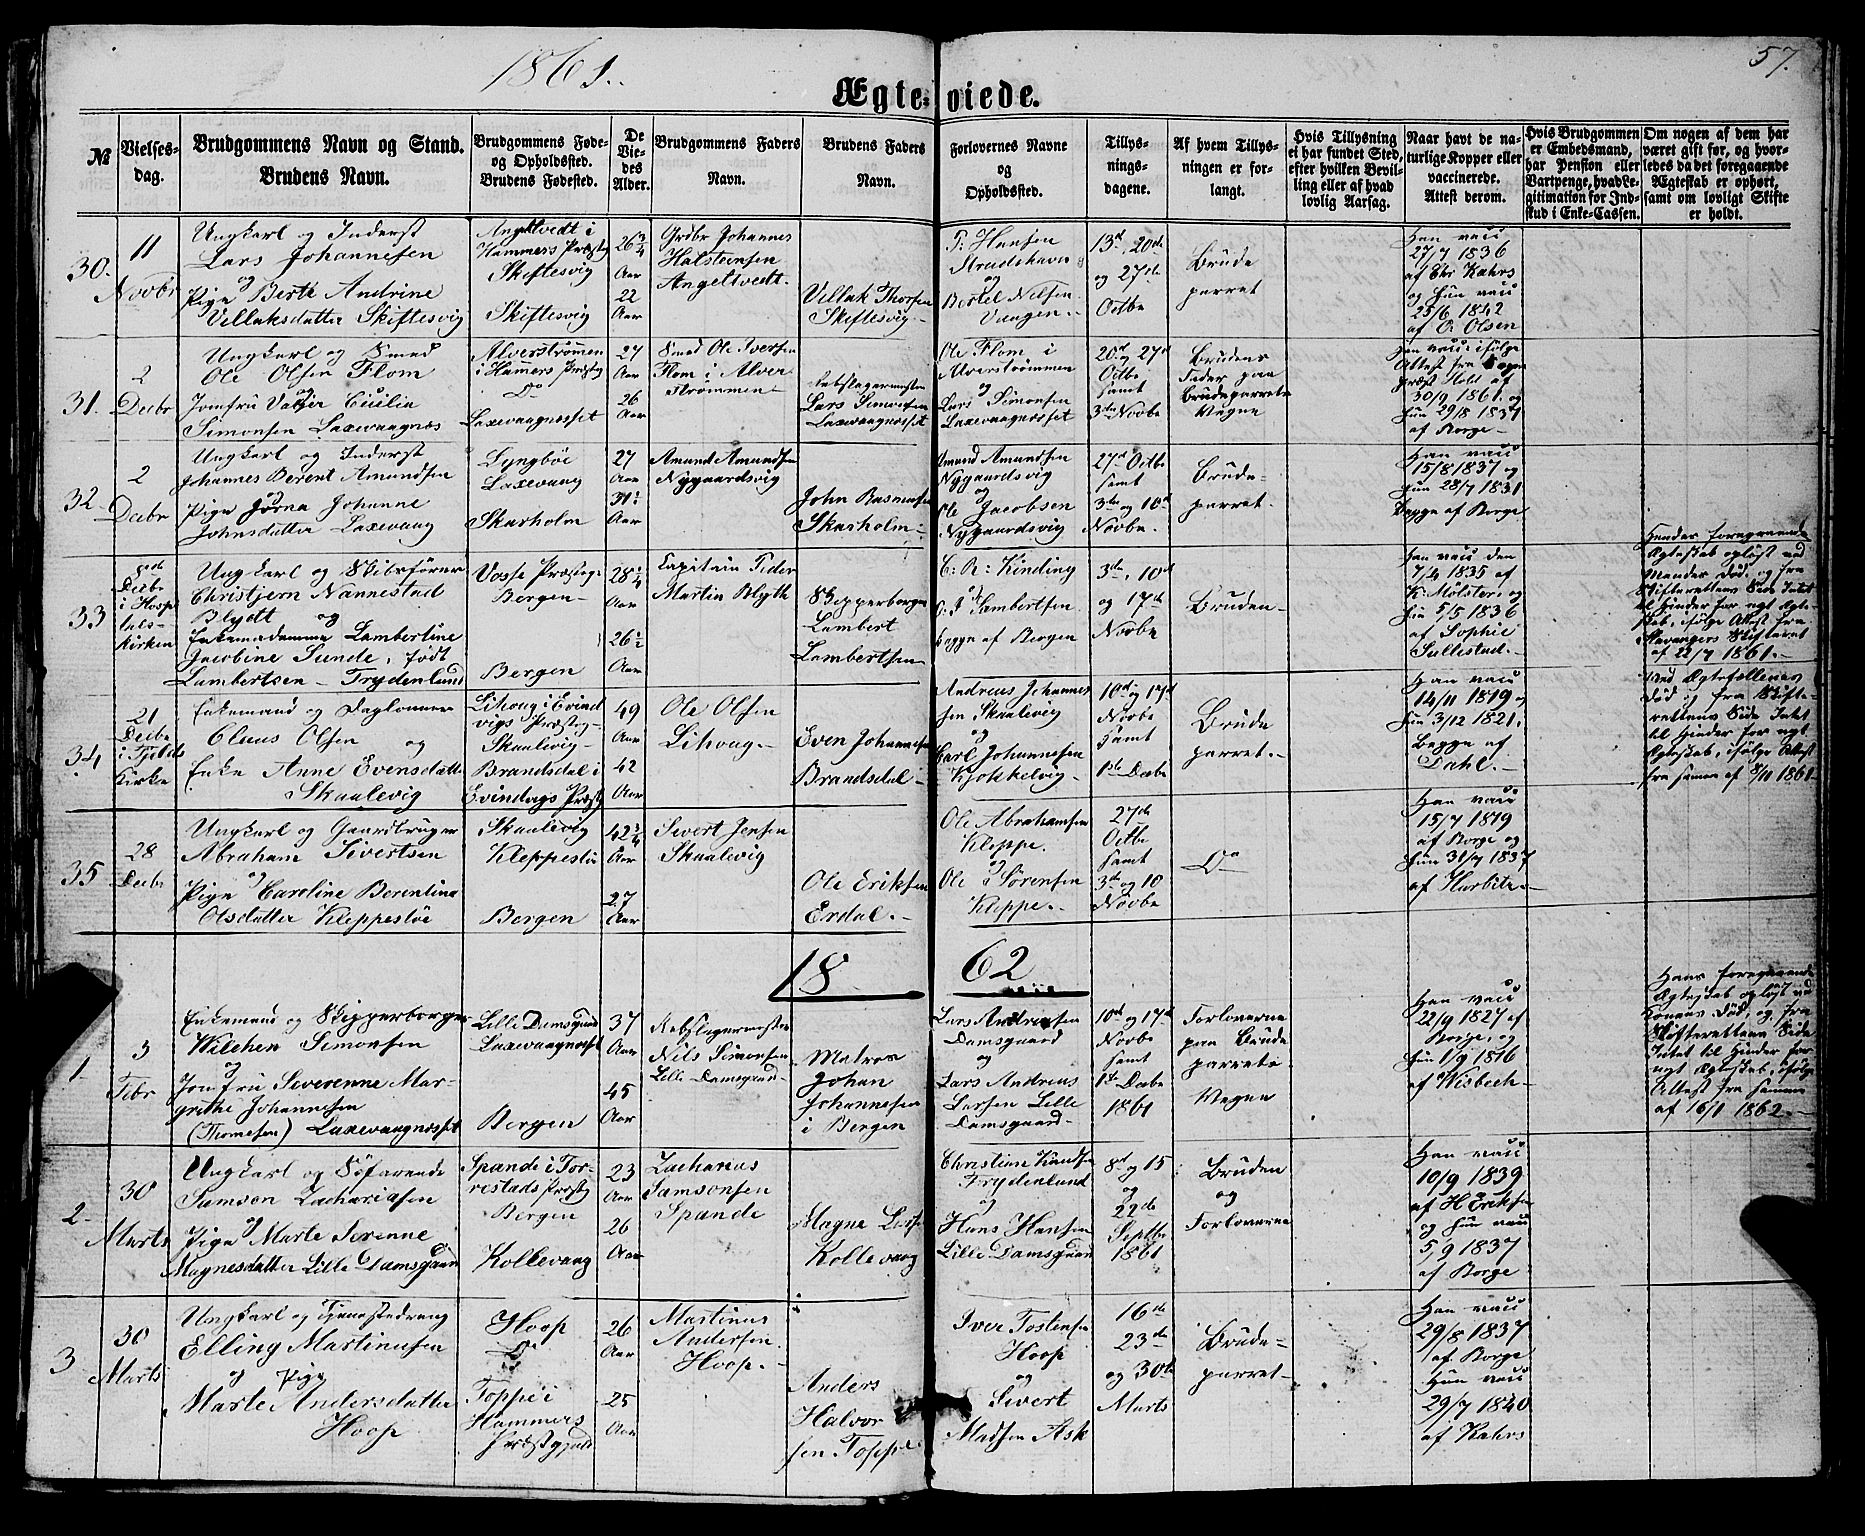 1861.
57.
Ægteviede.
№
Vielses-
dag.
Brudgommens Navn og Stand.
Brudens Navn.
Brudgommens Føde-
og Opholdssted.
Brudens Fødested.
De
Vie-
des
Alder.
Brudgommens Faders
Navn.
Brudens Faders
Navn.
Forlovernes Navne
og
Opholdssted.
Tillys-
nings-
dagene.
Af hvem Tillys-
ningen er for-
langt.
Hvis Tillysning
ei har fundet Sted,
efter hvilken Bevil-
ling eller af hvad
lovlig Aarsag.
Naar havt de na-
turlige Kopper eller
vaccinerede.
Attest derom.
Hvis Brudgommen
er Embedsmand,
har Pension eller
Vartpenge, hvad Le-
gitimation for Ind-
skud i Enke-Cassen.
Om nogen af dem har
været gift før, og hvor-
ledes da det foregaaende
Ægteskab er ophørt,
samt om lovligt Skifte
er holdt.
30.
11
Novbr
Ungkarl og Inderst
Lars Johannesen
og
Pige Berte Andrine
Villaksdatter Skiftesvig
Angeltvedt i
Hammers Præstg
Skiftesvig
Skiftesvig
26 3/4
Aar
22
Aar
Grdbr Johannes
Halsteinsen
Angeltvedt.
Villak Thorsen
Skiftesvig
P. Hansen
Strudshavn
og
Bertel Nilsen
Vaagen.
13d, 20de
og 27de
Octbr
Brude
parret
Han vacc
27/7 1836
af Ehr Kahrs
og hun vacc
25/6 1842
af O. Olsen
31.
2
Decbr
Ungkarl og Smed
Ole Olsen Flom
og
Jomfru Valger Cicilia
Simonsen Laxevaagnæs
Alverstrømmen
i Hamers Præstg
Do
Laxevaagnæsset
27
Aar
26
Aar
Smed Ole Iversen
Flom i Alver
strømmen
Rebslagermester
Lars Simonsen
Laxevaagnæsset
Ole Flom i
Alverstrømmen
og
Lars Simonsen
Laxevaagnæsset
20d og 27d
Octbr
samt
3die Novbr
Brudens
Fader paa
Brudeparrets
Vegne
Han vacc ifølge
Attest fra Sogne
præst Hold af
30/9 1861. og
hun 29/8 1837
af Borge
32.
2
Decbr
Ungkarl og Inderst
Johannes Berent Amundsen
og
Pige Jørna Johanne
Johnsdatter Laxevaag
Lyngböe
Laxevaag
Skarholm
27
Aar
31 1/2
Aar
Amund Amundsen
Nygaardsvig
John Rasmusen
Skarholm
Amund Amundsen
Nygaardsvig
og
Ole Jacobsen
Nygaardsvig
27d Octbr
samt
3die og 10d
Novbr.
Brude-
parret.
Han vacc
15/8 1837 og
hun 28/7 1831
Begge af Borge
33
Decbr
i Hospi
tals-
Kirken
Ungkarl og Skibsfører
Christjern Nannestad
Blydt og
Enkemadamme Lambertine
Jacobine Sunde, født
Lambertsen - Frydenlund
Vosse Præstg-
Bergen
Bergen
28 1/4
Aar
26 1/2
Aar
Capitain Peder
Martin Blyth
Skipperborger
Lambert
Lambertsen
C: R: Kinding
og
Lambertsen
begge af Bergen
3die, 10d
og 17de
Novbr
Bruden
Han vacc den
7/4 1835 af
K. Mölster, og
hun 5/5 1836
af Sophie
Sullestad.
Hendes foregaaende
Ægteskab opløst ved
Mandens Død, og fra
Skifterettens Side Intet
til Hinder for nyt Ægte-
skab, ifølge Attest fra
Stavangers Skifteret
af 22/7 1861.
34
21
Decbr
i Fjelds
Kirke
Enkemand og Daglønner
Claus Olsen og
Enke Anne Evensdatter
Skaalevig
Lihoug i Evind
vigs Præstg-
Skaalevig
Brandsdal i
Evindvigs Præstg
49
Aar
42
Aar
Ole Olsen
Lihoug.
Even Johannesen
Brandsdal
Andreas Johannes
sen Skaalevig
og
Carl Johannesen
Kjokkelvig
10d og 17d
Novbr
samt
1ste Decbr
Brude
parret.
Han vacc
14/11 1819 og
hun 3/12 1821.
Begge af
Dahl.
Ved Ægtefællernes
Død og fra Skifte-
rettens Side Intet
til Hinder for nyt
Ægteskab, ifølge Attest
fra samme af 8/11 1861
35
28
Decbr
Ungkarl og Gaardbruger
Abraham Sivertsen
og
Pige Caroline Berentina
Olsdatter Kleppestöe
Skaalevig
Kleppestöe
Bergen
42 1/4
Aar
27
Aar
Sivert Jensen
Skaalevig
Ole Eriksen
Erdal.
Ole Abrahamsen
Kleppe.
og
Ole Sørensen
Kleppe.
27de
Octbr
samt
3d og 10
Novbr
Do
Han vacc
15/7 1819
af Borge og
hun 31/7 1837
af Harbitz.
18 62
1.
3
Febr
Enkemand og Skipperborger
Wilchen Simonsen
og
Jomfru Severenne Mar-
grethe Johannesen
(Thomesen) Laxevaagnæsset
Lille Damsgaard
Laxevaagnæsset
Bergen
37
Aar
45
Aar
Rebslagermester
Nils Simonsen
Lille Damsgaard
Matros
Johan
Johannesen
i Bergen
Lars Andersen
Damsgaard
og
Lars Andreas
Larsen Lille
Damsgaard
10d og 17d
Novbr
samt
1ste Decbr
1861
Forloverne
paa Brude
parrets
Vegne
Han vacc
22/9 1827 af
Borge, og
hun 1/9 1816
af Wisbech
Hans foregaaende
Ægteskab opløst ved
Konens Død, og fra
Skifterettens Side
Intet til Hinder for
nyt Ægteskab, ifølge
Attest fra samme
af 16/1 1862.
2
30
Marts
Ungkarl og Søfarende
Samson Zachariasen
og
Pige Marte Serine
Magnesdatter Lille Damsgaard
Spande i Før-
restads Præstg
Bergen
Kollevaag
23
Aar
26
Aar
Zacharias
Samsonsen
Spande
Magne Larsen
Kollevaag
Christian Knudsen
Frydenlund
og
Hans Hansen
Lille Damsgaard
8d og 15
og
22de
Septbr
1861
Bruden
og
Forloverne
Han vacc
10/9 1839
af H Eriksen
og hun vacc
5/9 1837
af Borge
3
30
Marts
Ungkarl og Tjenestedreng
Elling Martinusen
og Pige
Marte Andersdatter
Hoop
Hoop
Do
Toppe i
Hammers
Præstegjeld
26
Aar
25
Aar
Martinus
Andersen
Hoop.
Anders
Halvor
sen Toppe
Iver Tostensen
Hoop
og
Sivert
Madsen Ask
16de
23de
og 30te
Marts
Brude-
parret
Han vacc
29/8 1837
af Borge
Hun vacc
29/7 1840
af Kahrs